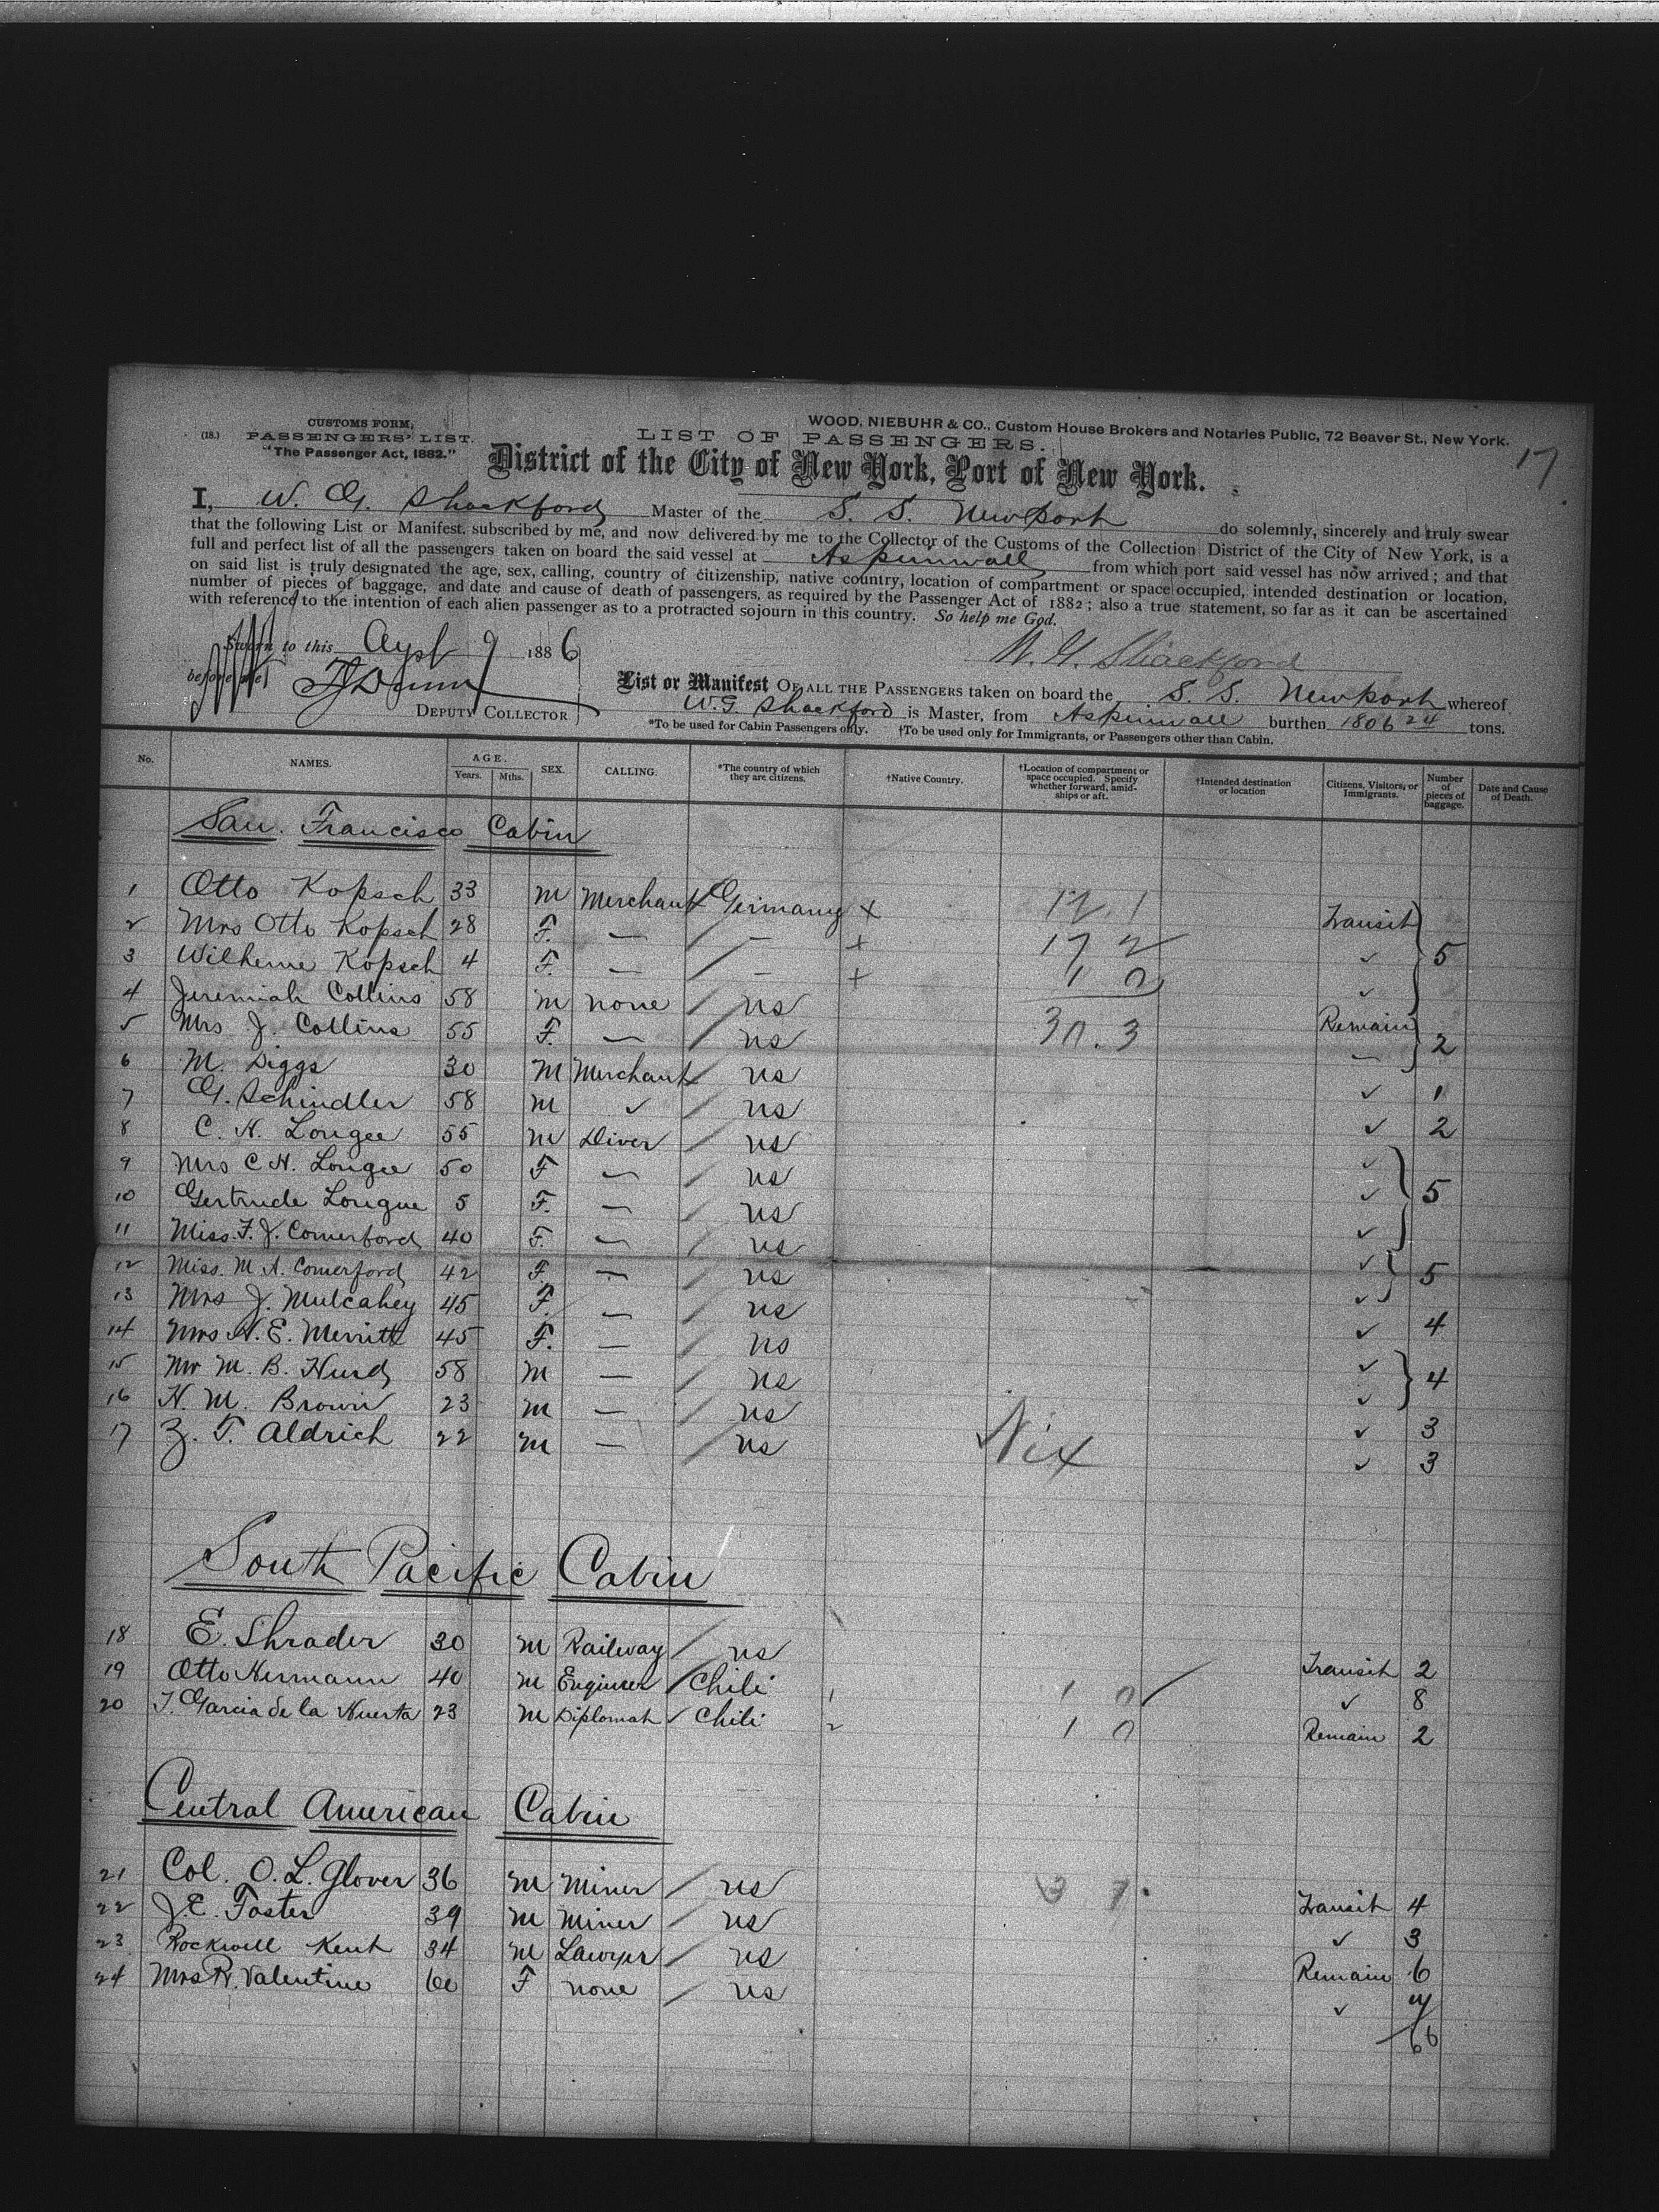 WOOD, NIEBUHR & CO., Custom House Brokers and Notaries Public, 72 Beaver St., New York.
(18.) CUSTOMS FORM,
PASSENGERS' LIST.
"The Passenger Act, 1882."
LIST OF PASSENGERS.
17
District of the City of New York, Port of New York.
I, W. G. Shackford Master of the S. S. Newport do solemnly, sincerely and truly swear
that the following List or Manifest, subscribed by me, and now delivered by me to the Collector of the Customs of the Collection District of the City of New York, is a
full and perfect list of all the passengers taken on board the said vessel at Aspinwall from which port said vessel has now arrived; and that
on said list is truly designated the age, sex, calling, country of citizenship, native country, location of compartment or space occupied, intended destination or location,
number of pieces of baggage, and date and cause of death of passengers, as required by the Passenger Act of 1882; also a true statement, so far as it can be ascertained
with reference to the intention of each alien passenger as to a protracted sojourn in this country. So help me God.
Sworn to this 9 1886
W. G. Shackford
before me
DEPUTY COLLECTOR
List or Manifest OF ALL THE PASSENGERS taken on board the S. S. Newport whereof
W. G. Shackford is Master, from Aspinwall burthen 1806 24 tons.
*To be used for Cabin Passengers only. †To be used only for Immigrants, or Passengers other than Cabin.
No. NAMES. AGE. Years. Mths. SEX. CALLING. *The country of which they are citizens. †Native Country. †Location of compartment or space occupied. Specify whether forward, amidships or aft. †Intended destination or location Citizens, Visitors, or Immigrants. Number of pieces of baggage. Date and Cause of Death.
San. Francisco Cabin
1 Otto Kopsch 33 M Merchant Germany + Transit
2 Mrs Otto Kopsch 28 F. — — + 17 2 ✓ 5
3 Wilherme Kopsch 4 F. — — + 1 0 ✓
4 Jeremiah Collins 58 M none / us 30.3 Remain
5 Mrs J. Collins 55 F. — / us — 2
6 M. Diggs 30 M Merchant / us ✓ 1
7 G. Schindler 58 M ✓ / us ✓ 2
8 C. H. Lougee 55 M Diver / us ✓
9 Mrs C H. Lougee 50 F — / us ✓ 5
10 Gertrude Lougue 5 F. — / us ✓
11 Miss. F. J. Comerford 40 F. — / us ✓
12 Miss. M A. Comerford 42 F. — / us ✓ 5
13 Mrs J. Mulcahey 45 F. — / us ✓ 4
14 Mrs N. E. Merritt 45 F. — / us ✓
15 Mr M. B. Hurd 58 M — / us ✓ 4
16 H. M. Brown 23 M — / us ✓ 3
17 Z. T. Aldrich 22 M — / us Nix ✓ 3
South Pacific Cabin
18 E. Shrader 30 M Railway / us Transit 2
19 Otto Hermann 40 M Engineer / Chili 1 1 0 ✓ 8
20 J. Garcia de la Huerta 23 M Diplomat ✓ Chili 2 1 0 Remain 2
Central American Cabin
21 Col. O. L. Glover 36 M Miner / us Transit 4
22 J. E. Foster 39 M Miner / us ✓ 3
23 Rockwell Kent 34 M Lawyer / us Remain 6
24 Mrs R. Valentine 60 F none / us ✓